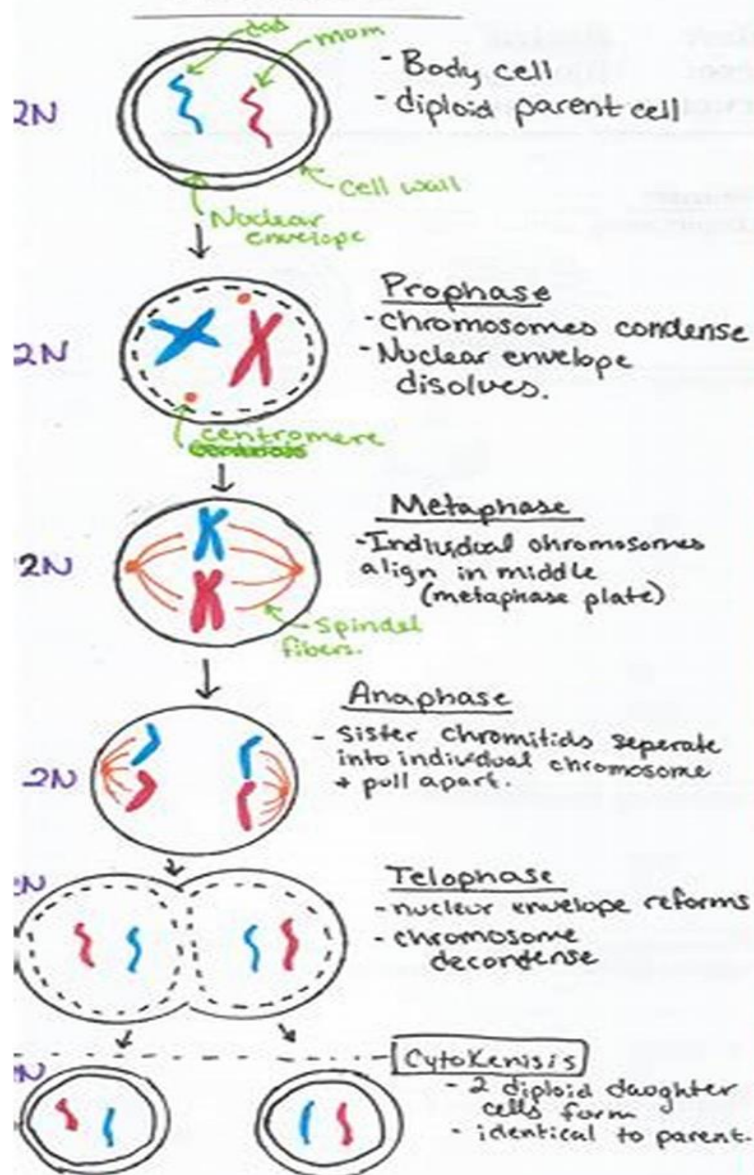 dad
mom
2N
- Body cell
- diploid parent cell
cell wall
Nuclear
envelope
Prophase
- chromosomes condense
- Nuclear envelope
disolves.
2N
centromere
Metaphase
- Individual chromosomes
align in middle
(metaphase plate)
2N
Spindel
fibers.
Anaphase
- Sister Chromitids seperate
into individual chromosome
+ pull apart.
2N
Telophase
- nuclear envelope reforms
- chromosome
decondense
N
CytoKenisis
- 2 diploid daughter
cells form
- identical to parent.
N